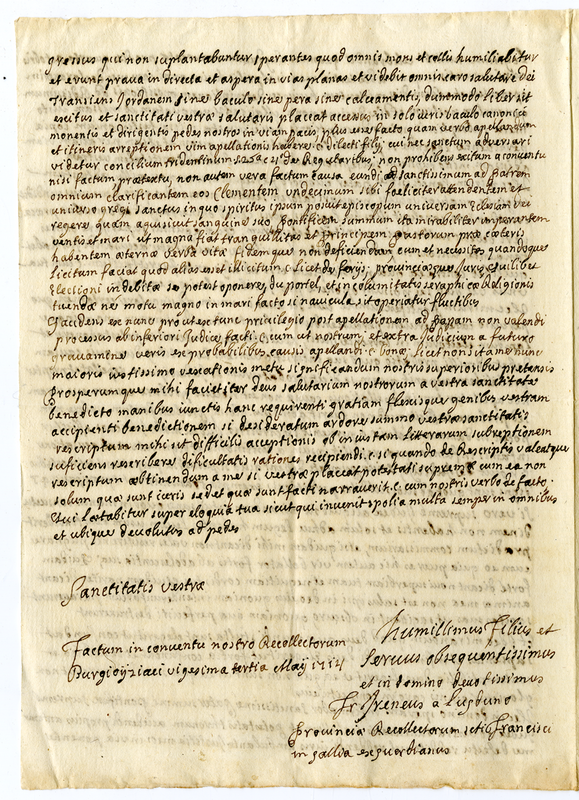 gressus qui non suplantabuntur sperantes quod omnis mons et collis humiliabitur
et erunt prava in directa et aspera in vias planas et videbit omnis caro salutare dei
Transiens Jordanem sine baculo sine pera sine calceamentis, dummodo liber sit
exitus et sanctitati vestræ salutaris placeat accessus in solo veris baculo canonico
monentis et dirigentis pedes nostros in viam pacis plus esse facto quam verbo apellandum
et itineris arreptionem vim apellationis habere c. dilecti filij cui nec sanctum adversari
videtur concilium tridentinum s. 25a c. 4 de Regularibus, non prohibens exitum a conventu
nisi factum prætextu, non autem vera factum causa eundi ad sanctissimum ad patrem
omnium clarificantem eos Clementem undecimum sibi foeliciter attendentem et
universo gregi sanctus in quo spiritus ipsum posuit episcopum universam Ecclesiam dei
regere quam aquisivit sanguine suo pontificem summum ita mirabiliter imperantem
ventis et mari ut magna fiat tranquillitas et principem pastorum præ cæteris
habentem æternæ verba vitæ fidemque non deficiendam cum et necessitas quandoque
licitum faciat quod alias esset illicitum c. licet de ferijs, provinciæque Juris
Electioni indebitæ se potest oponere du portel, et incolumitatis seraphicæ Religionis
tuendæ ne motu magno in mari facto si navicula sit operiatur fluctibus
Gaudens ex nunc prout ex tunc privilegio post apellationem ad papam non valendi
processus ab inferiori Judice facti c. cum ut nostrum, et extra Judicium a futuro
gravamine veris ex probabilibus causis apellandi c. bonæ, licet non sitamen nunc
maioris iustissimo vexationis metu significandum nostris superioribus pretensis
prosperumque mihi faciet iter deus salutarium nostrorum a vestra sanctitate
benedicto manibus iunctis hanc requirenti gratiam flexisque genibus vestram
accipienti benedictionem si desideratum ardore summo vestræ sanctitatis
rescriptum mihi sit difficilis acceptionis ob iniustam litterarum subreptionem
suficiens rescribere dificultatis rationes recipiendi c. si quando de Rescriptis valeatque
rescriptum obtinendum a me si vestræ placeat potestati supremæ cum ea non
solum quæ sunt iuris sed et quæ sunt facti narraverit c. cum nostris verbo de facto.
Qui lætabitur super eloquia tua sicut qui invenit spolia multa semper in omnibus
et ubique devolutus ad pedes
Sanctitatis vestræ
Factum in conventu nostro Recollectorum
Burgi vigesima tertia Maÿ 1714
humillimus Filius et
Servus obsequentissimus
et in domino devotissimus
Fr Ireneus a Lugduno
provinciæ Recollectorum scti Francisci
in gallia exguardianus